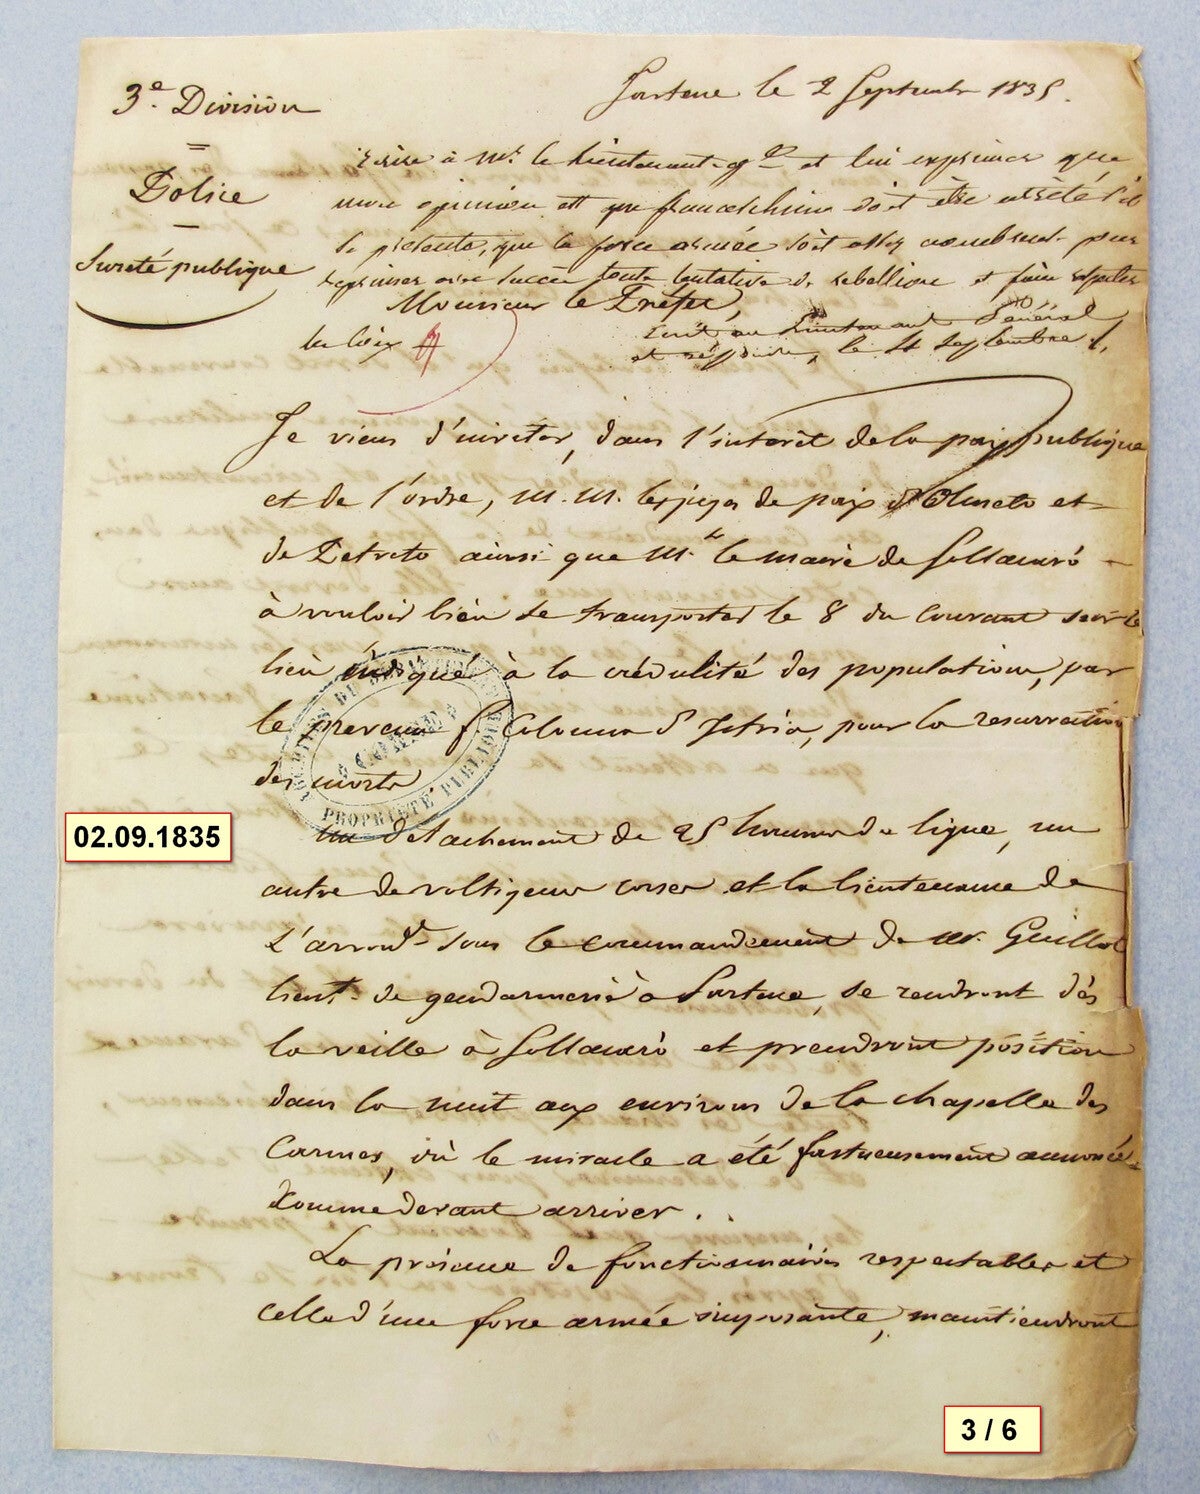 3e. Division
Police
Sureté publique
Sartene le 2 Septembre 1835.
Ecrire à Mr. le Lieutenant-gal et lui exprimer que
mon opinion est que franceschini doit être arrêté s'il
se présente, que la force armée soit assez nombreuse pour
reprimer avec succès toute tentative de rebellion et faire respecter
les loix
Monsieur le Préfet,
Ecrit au Lieutenant Général
et répondu, le 4 Septembre
Je viens d'inviter, dans l'intérêt de la paix publique
et de l'ordre, M. M. les juges de paix d'Olmeto et
de Petreto ainsi que Mr. le maire de Sollacaro
à vouloir bien se transporter le 8 du courant sur le
lieu indiqué à la crédulité des populations, par
le prevenu f. Colonna d'Istria, pour la resurrection
des morts.
Un detachement de 25 hommes de ligne, un
autre de voltigeurs corses et la lieutenance de
l'arrondt. sous le commandement de Mr. Guillot
lieut. de gendarmerie à Sartene, se rendront dès
la veille à Sollacaro et prendront position
dans la nuit aux environs de la chapelle des
Carmes, où le miracle a été fastueusement annoncé
comme devant arriver.
La présence de fonctionnaires respectables et
celle d'une force armée imposante, maintiendront
PROPRIÉTÉ PUBLIQUE
02.09.1835
3 / 6